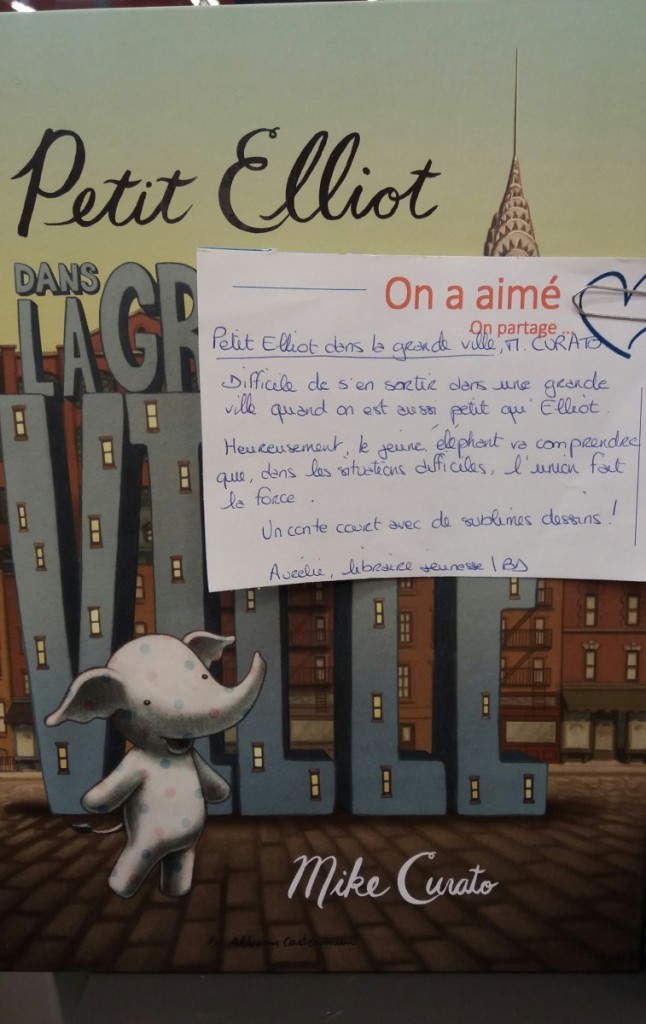 Petit Elliot
DANS
LA GR
VILLE
On a aimé
On partage ...
Petit Elliot dans la grande ville, M. CURATO
Difficile de s'en sortir dans une grande
ville quand on est aussi petit qu'Elliot.
Heureusement, le jeune éléphant va comprendre
que, dans les situations difficiles, l'union fait
la force.
Un conte court avec de sublimes dessins !
Aurélie, libraire jeunesse / BD
Mike Curato